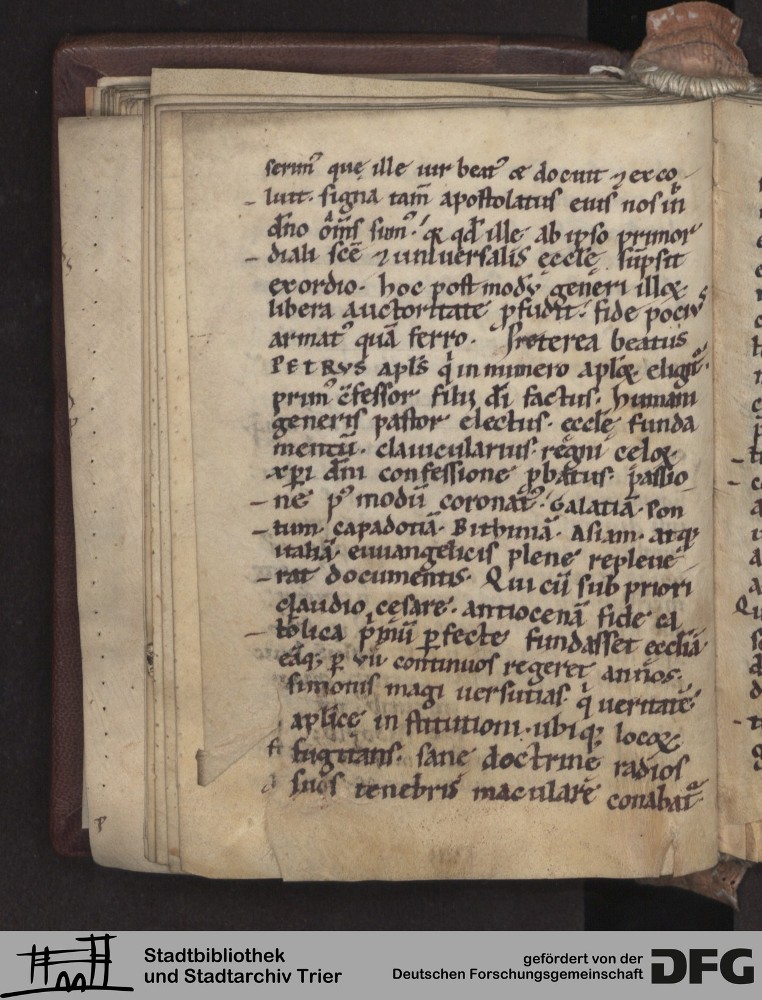 serim᾽ que ille uir beat᾽ & docuit ⁊ exco
luit. signa tam̄ apostolatus eius nos in
dn̄o om̄s sum᾽. qd̄ ille ab ipso primor
diali scē ⁊ uniuersalis eccle sūpsit
exordio. hoc postmodū generi illoꝝ
libera auctoritate ꝓfudit. fide poci᾽
armat᾽ quā ferro. Preterea beatus
PETRVS apls q̇ in numero aploꝝ eligit᷑.
prim᾽ ꝯfessor filii dī factus. humani
generis pastor electus. eccle funda
mentū. clauicularius regni celoꝝ.
xpi dn̄i confessione ꝓbatus. passio
ne p᾽modū coronat᾽. Galatiā. Pon
tum. capadotiā. Bithiniā. Asiam. atq;
italiā. euuangelicis plene repleue
rat documentis. Qui cū sub priori
claudio cesare. antiocenā fide ca
tolica p̄mū ꝑfecte fundasset eccliā
eāq; ꝑ vii continuos regeret annos.
simonis magi uersutias. q̇ ueritatē
aplice institutioni. ubiq; locoꝝ
fugitans. sane doctrine radios
suis tenebris maculare conabat᷑
Stadtbibliothek
und Stadtarchiv Trier
gefördert von der
Deutschen Forschungsgemeinschaft
DFG